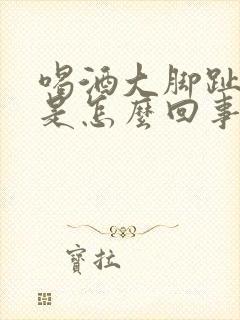 喝酒大脚趾
是怎麼回事
寶拉